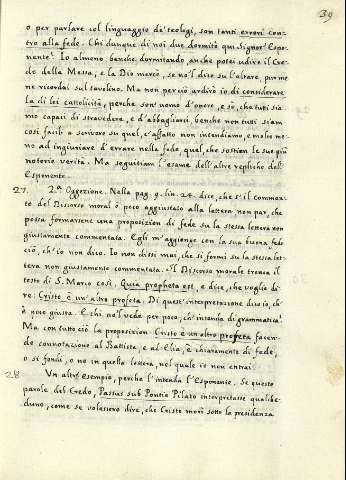 39
o per parlare col linguaggio de' teologi, son tanti errori con-
tro alla fede. Chi dunque di noi due dormitò qui Signor Espo-
nente? Io almeno benche dormitando anche potei udire il Cre-
do della Messa, e la Dio mercè, se no'l dico su l'altare, pur me
ne ricordai sul tavolino. Ma non perciò ardirò io di considerare
la di lei cattolicità, perche son' uomo d'onore, e sò, che tuti sia-
mo capaci di stravedere, e d'abbagliarci, benche non tuti siam
così facili a scrivere su quel, ch'affatto non intendiamo, e molto me-
no ad ingiuriare d'errare nella fede quel, che sostien le sue più
notorie verità. Ma seguitiam l'esame dell'altre repliche dell'
Esponente.
27. 2.a Oggezione. Nella pag. 9. lin. 24. dice, che s'il commen-
to del Discorso moral è poco aggiustato alla lettera non par, che
possa formarsene una proposizion di fede su la stessa lettera non
giustamente commentata. Egli m'aggiunge con la sua buona fede
ciò, ch'io non dico. Io non dissi mai, che si formi su la stessa let-
tera non giustamente commentata. Il Discorso morale tronca il
testo di S. Marco così: Quia propheta est, e dice, che voglia di-
re: Cristo è un' altro profeta. Di quest' interpretazione dico io, ch'
è poco giusta. E chi no'l vede per poco, ch'intenda di grammatica?
Ma con tutto ciò la proposizion Cristo è un altro profeta facen-
do connotazione al Battista, e ad Elia, è chiaramente di fede,
o si fondi, o no in quella lettera, nel quale io non entrai.
28. Un altro esempio, perche l'intenda l'Esponente. Se questo
parole del Credo, Passus sub Pontio Pilato interpretasse qualche-
duno, come se volessero dire, che Cristo morì sotto la presidenza